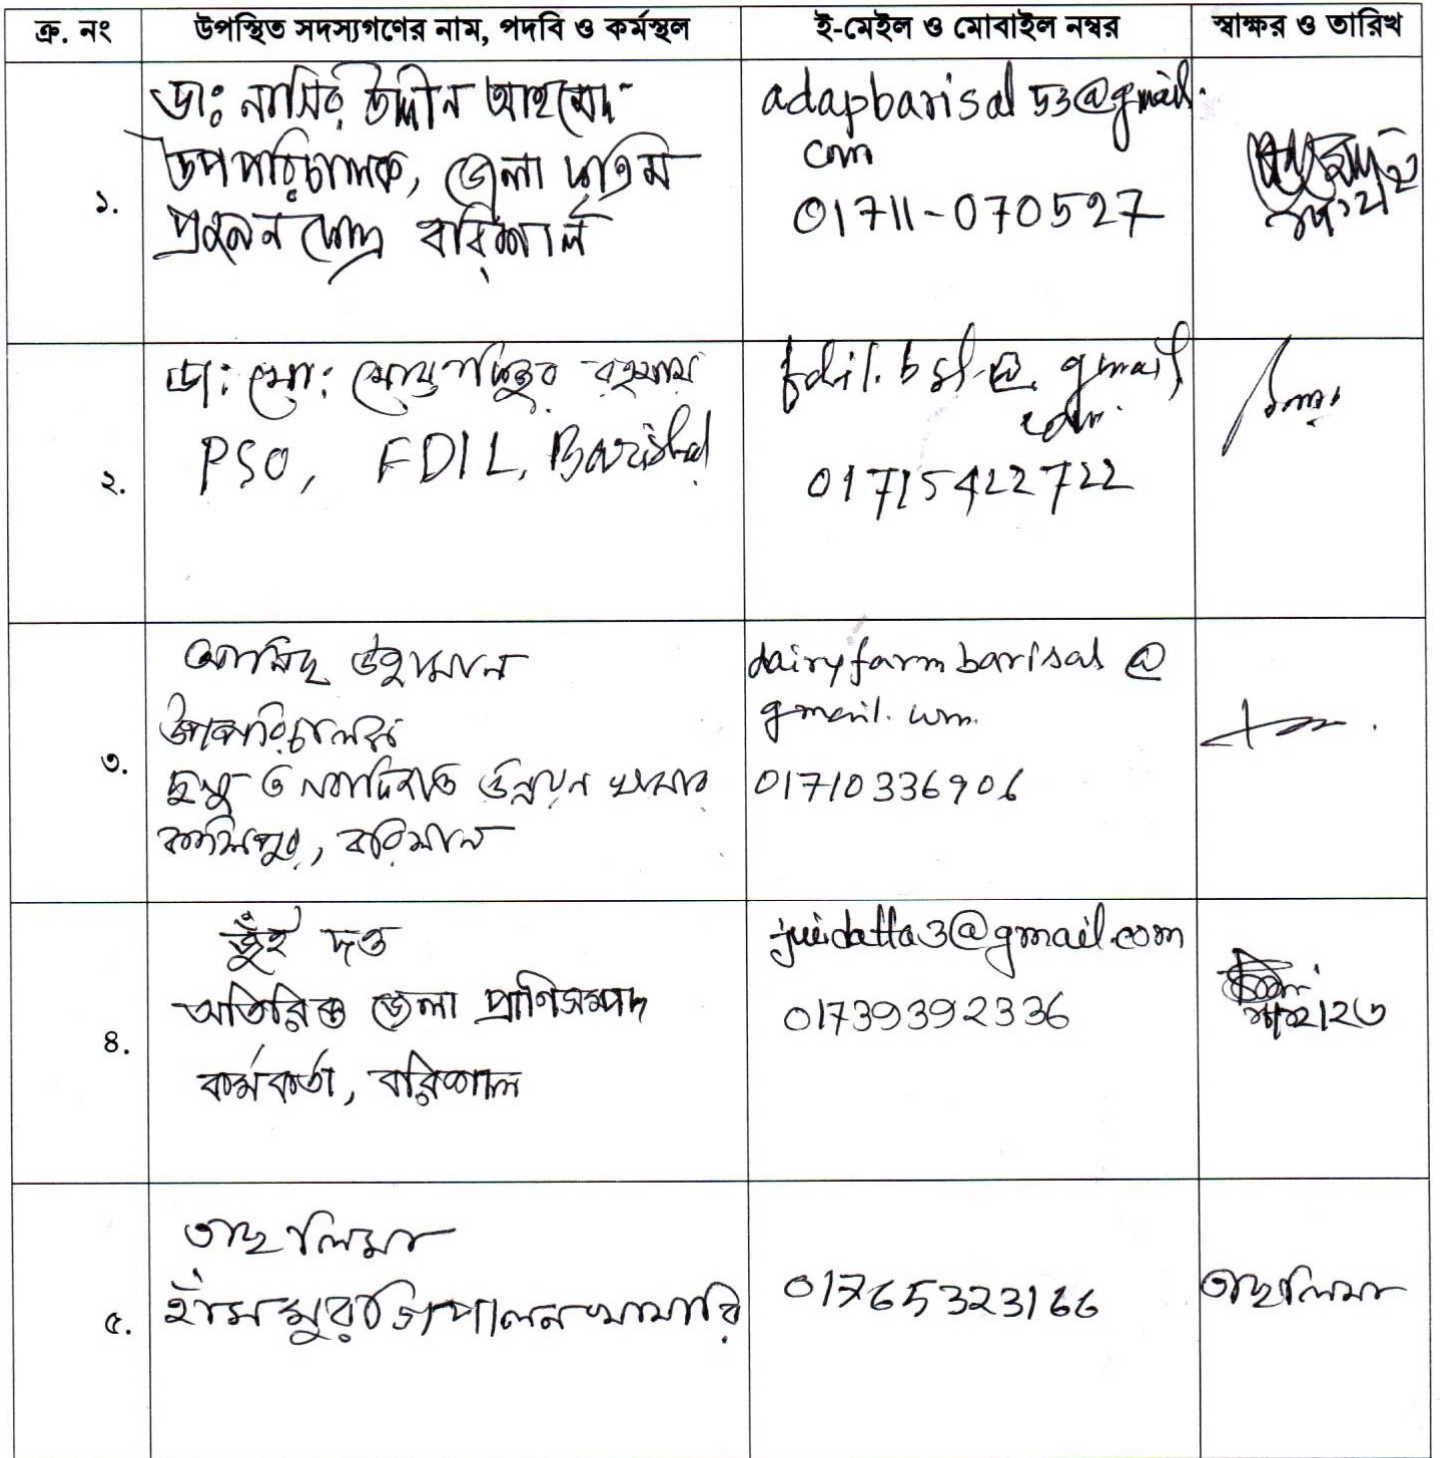 ক্র. নং উপস্থিত সদস্যগণের নাম, পদবি ও কর্মস্থল ই-মেইল ও মোবাইল নম্বর স্বাক্ষর ও তারিখ
১.
ডাঃ নাসির উদ্দীন আহমেদ
উপপরিচালক, জেলা কৃত্রিম
প্রজনন কেন্দ্র বরিশাল
adapbarisal53@gmail.
com
01711-070527
২.
ডা: মো: রহমান
PSO, FDIL, Barishal
fdil.bsl@gmail
com
01715422722
৩.
উপপরিচালক
দুগ্ধ ও গবাদিপশু উন্নয়ন খামার
কাশিপুর, বরিশাল
dairyfarmbarisal@
gmail.com
01710336906
৪.
জুঁই দত্ত
অতিরিক্ত জেলা প্রাণিসম্পদ
কর্মকর্তা, বরিশাল
juidatta3@gmail.com
01739392336
৫.
তাছলিমা
হাঁস মুরগি পালন খামারি
01765323166
তাছলিমা